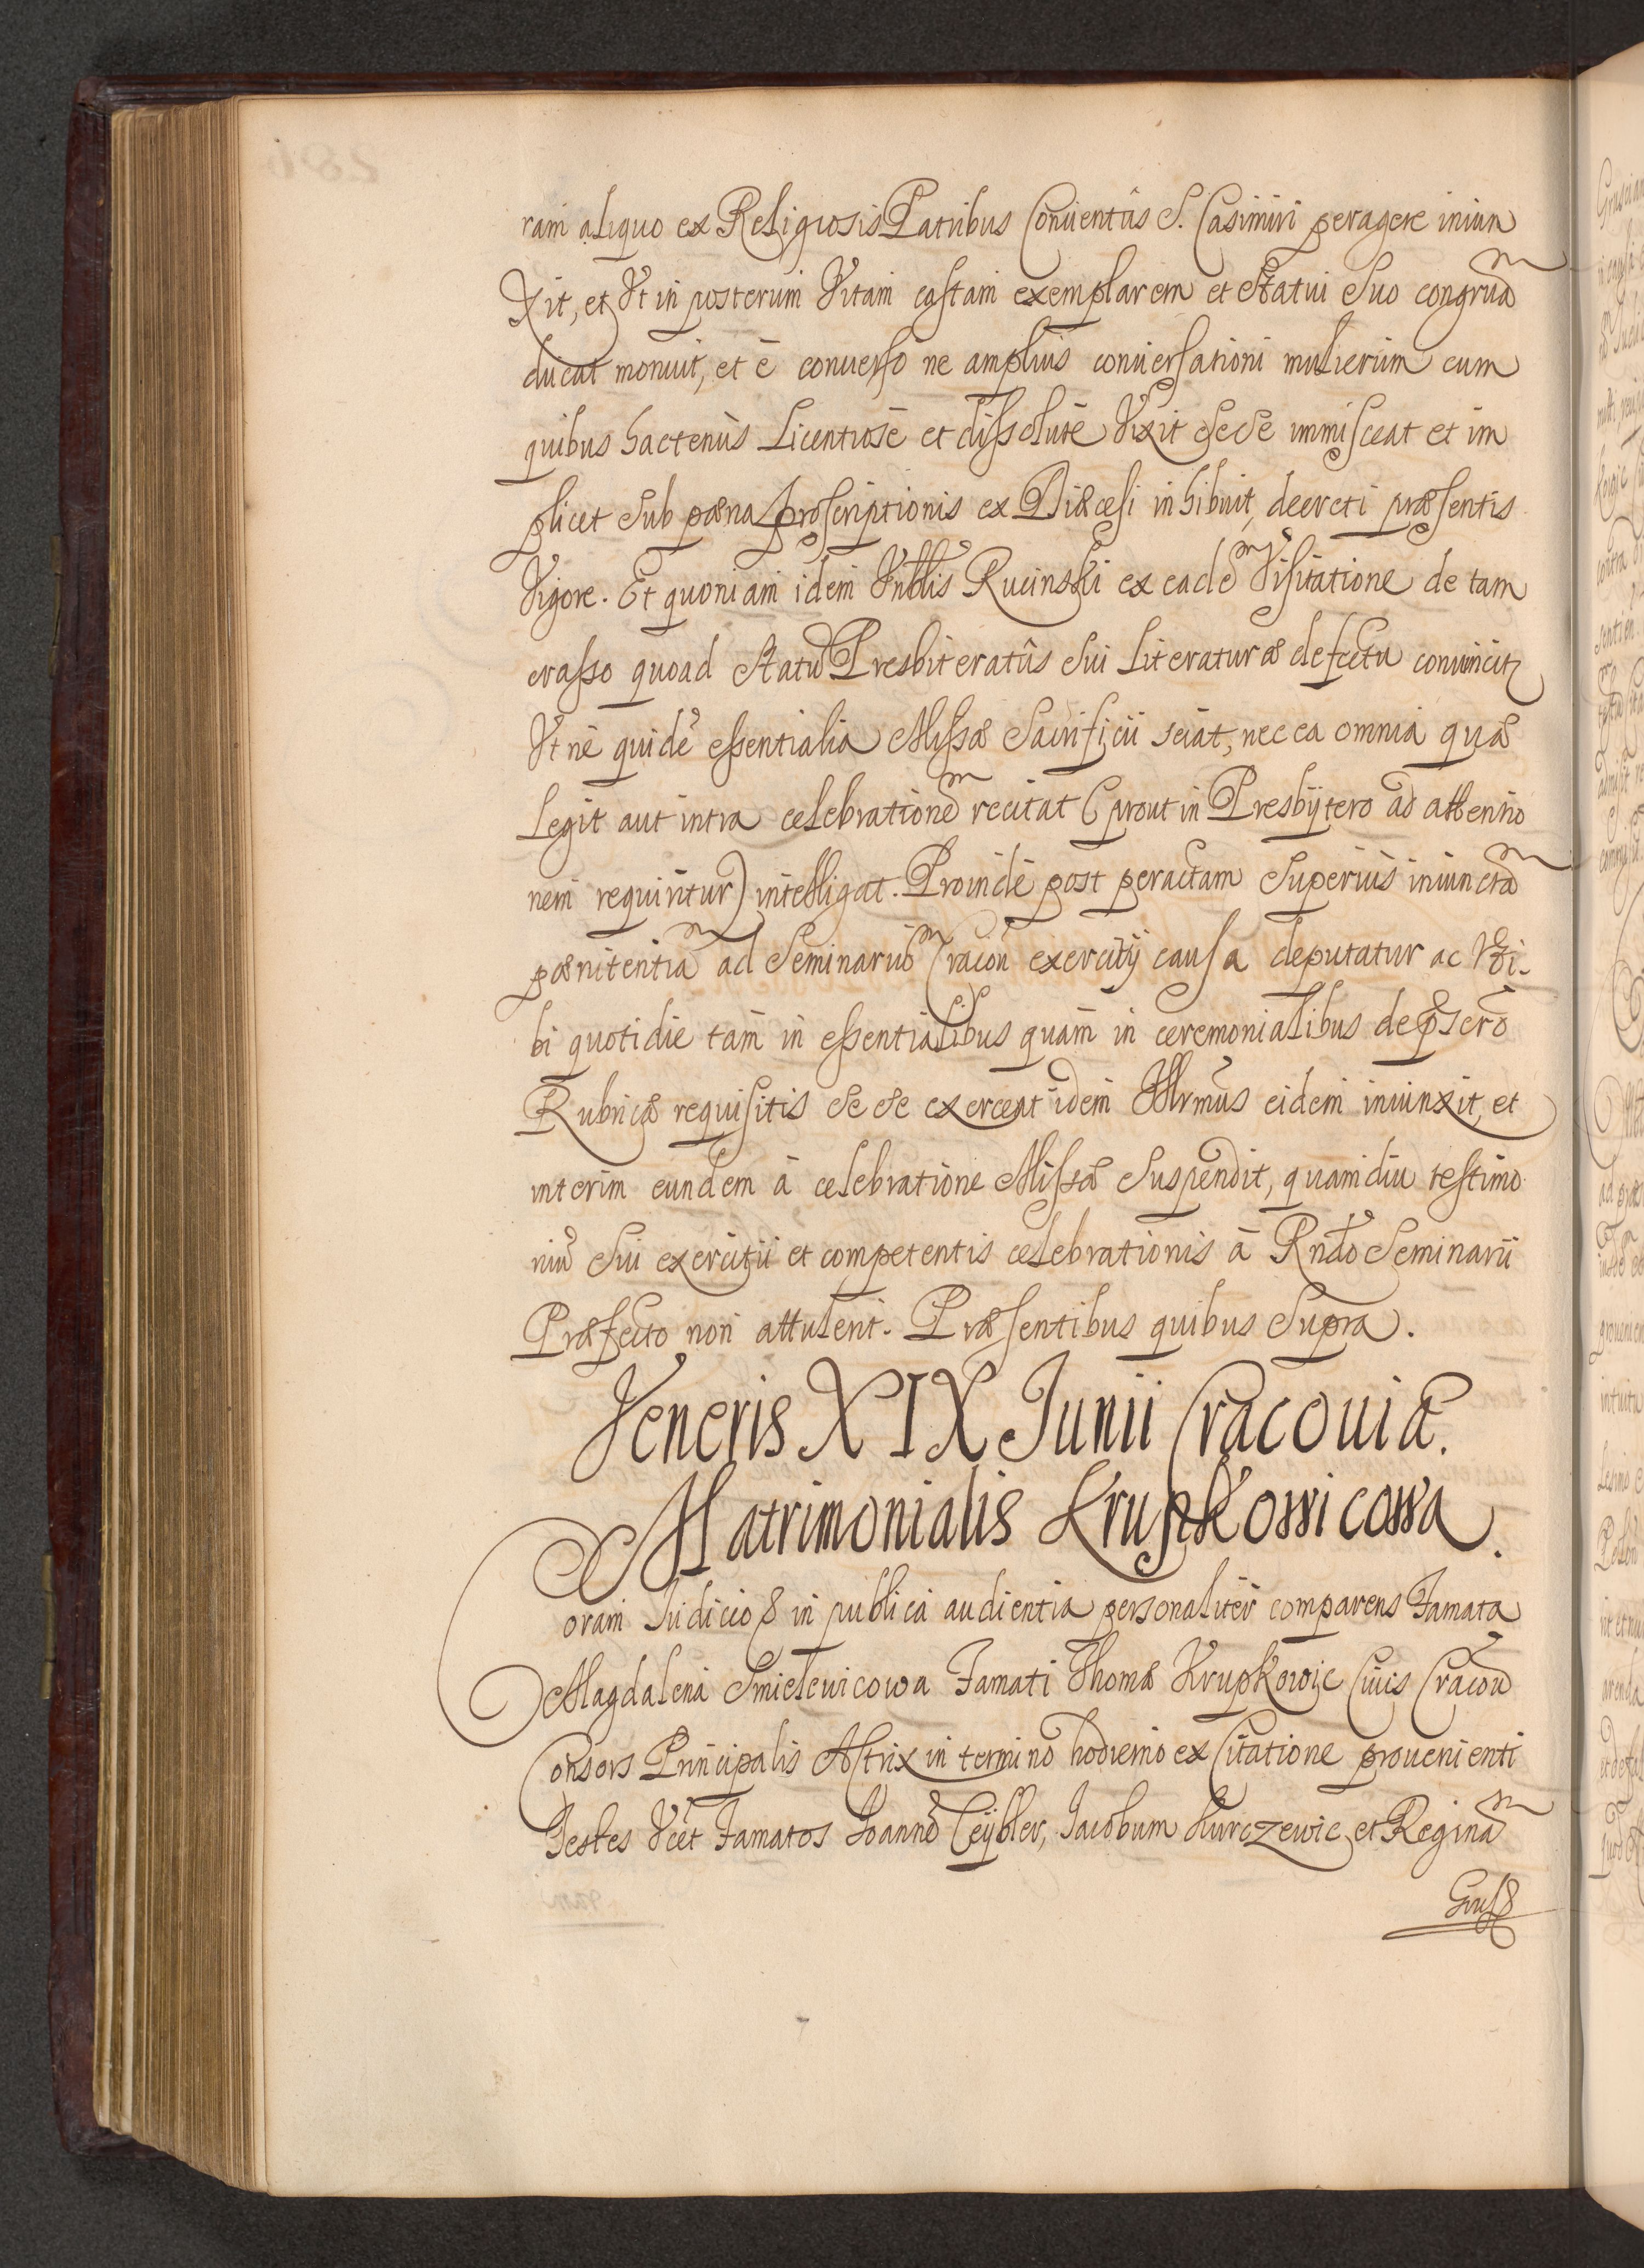 ram aliquo ex Religiosis Patribus Conuentûs S. Casimiri peragere iniun
xit, et Vt in posterum Vitam castam exemplarem et Statui Suo congruã
ducat monuit, et è conuerso ne amplius conuersationi mulierum cum
quibus hactenùs Licentiosè et dissolutè Vixit sese immisceat et im
plicet Sub pæna proscriptionis ex Diæcesi inhibuit, decreti præsentis
Vigore. Et quoniam idem Vnblis Rucinski ex eadẽ Visitatione de tam
crasso quoad Statũ Presbiteratûs Sui Literaturæ defectu conuincitr
Vt nè quidẽ essentialia Missæ Sacrificii sciat, nec ea omnia quæ
Legit aut intra celebrationẽ recitat (prout in Presbytero ad attentio
nem requiritur) intelligat. Proindè post peractam Superiùs iniunctã
pænitentiã ad Seminariũ Cracou exercitij causa deputatur ac Vbi-
bi quotidie tam in essentialibus quam in ceremonialibus de
Rubricæ requisitis se se exerceat idem Illrmus eidem iniunxit, et
interim eundem à celebratione Missæ Suspendit, quamdiu testimo
niũ Sui exercitii et competentis celebrationis à Rndo Seminarii
Præfecto non attulerit. Præsentibus quibus Supra.
Veneris XIX Junii Cracouiæ.
Matrimonialis Krupkowicowa.
Coram Judicio & in publica audientia personaliter comparens Famata
Magdalena Smielewicowa Famati Thomæ Krupkowic Ciuis Cracou
Consors Principalis Actrix in termino hodierno ex Citatione prouenienti
Testes Vcet Famatos Joannẽ Ceybler, Jacobum Kurczewic et Reginã
Grus